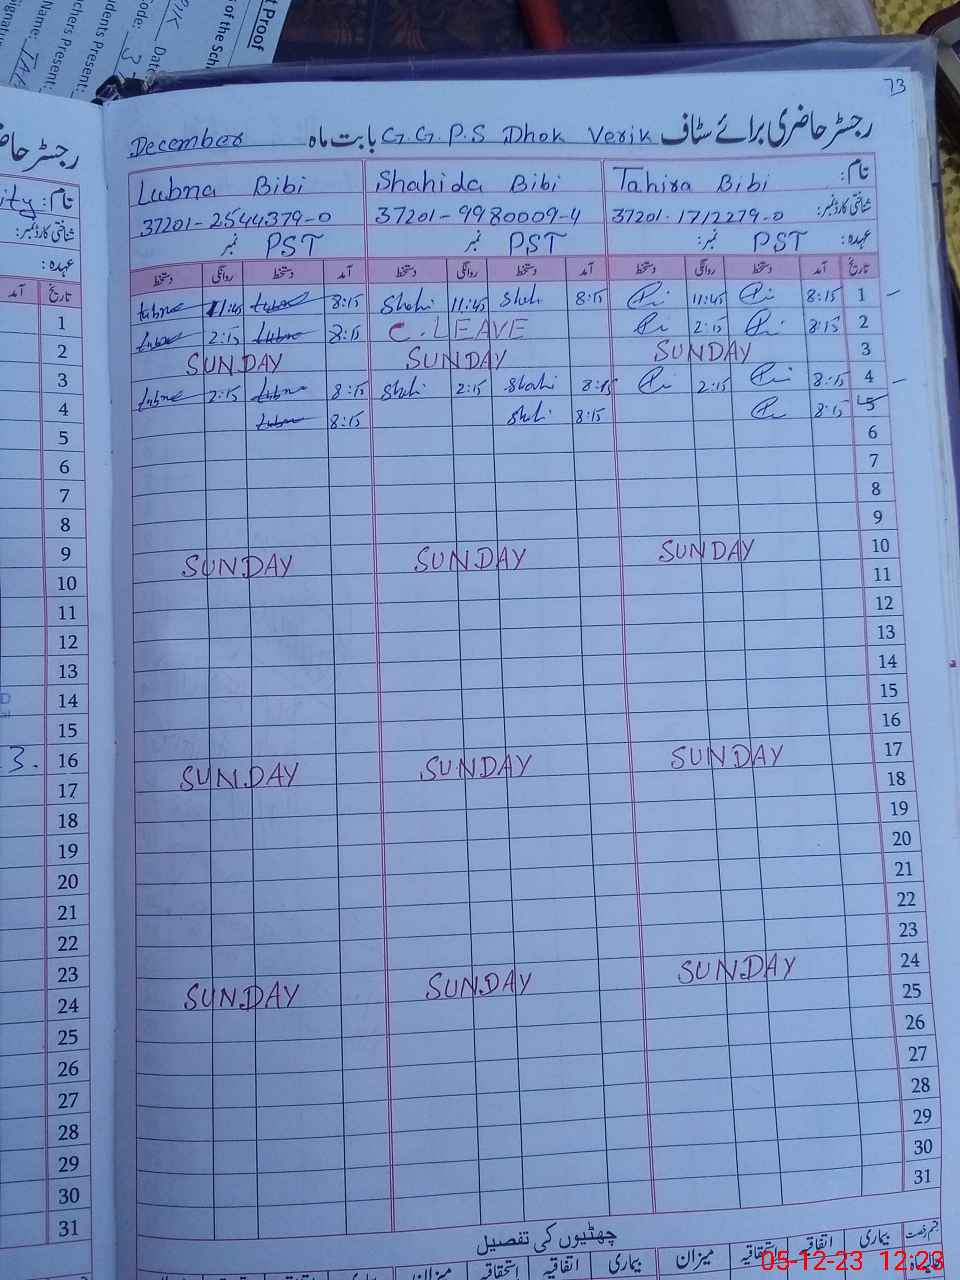 t Proof
s of the Sch
Date
Code: 3
dents Present:
chers Present:
Name: TAH
Signatur
73
رجسٹر حاضری برائے سٹاف G.G.P.S Dhok Verik بابت ماہ December
نام: Tahira Bibi Shahida Bibi Lubna Bibi
شناختی کارڈ نمبر: 37201-1712279-0 37201-9980009-4 37201-2544379-0
عہدہ: PST نمبر: PST نمبر PST نمبر
تاریخ آمد دستخط روانگی دستخط آمد دستخط روانگی دستخط آمد دستخط روانگی دستخط
1 8:15 11:45 8:15 Shahi 11:45 Shahi 8:15 Lubna 11:45 Lubna
2 8:15 2:15 C. LEAVE 8:15 Lubna 2:15 Lubna
3 SUNDAY SUNDAY SUNDAY
4 8:15 2:15 8:15 Shahi 2:15 Shahi 8:15 Lubna 2:15 Lubna
5 8:15 8:15 Shahi 8:15 Lubna
6
7
8
9
10 SUNDAY SUNDAY SUNDAY
11
12
13
14
15
16
17 SUNDAY SUNDAY SUNDAY
18
19
20
21
22
23
24 SUNDAY SUNDAY SUNDAY
25
26
27
28
29
30
31
چھٹیوں کی تفصیل
بیماری اتفاقیہ استحقاقیہ میزان بیماری اتفاقیہ استحقاقیہ میزان
رجسٹر حا
نام: ity
شناختی کارڈ نمبر:
عہدہ:
تاریخ آمد
1
2
3
4
5
6
7
8
9
10
11
12
13
14
15
16 3.
17
18
19
20
21
22
23
24
25
26
27
28
29
30
31
05-12-23 12:23